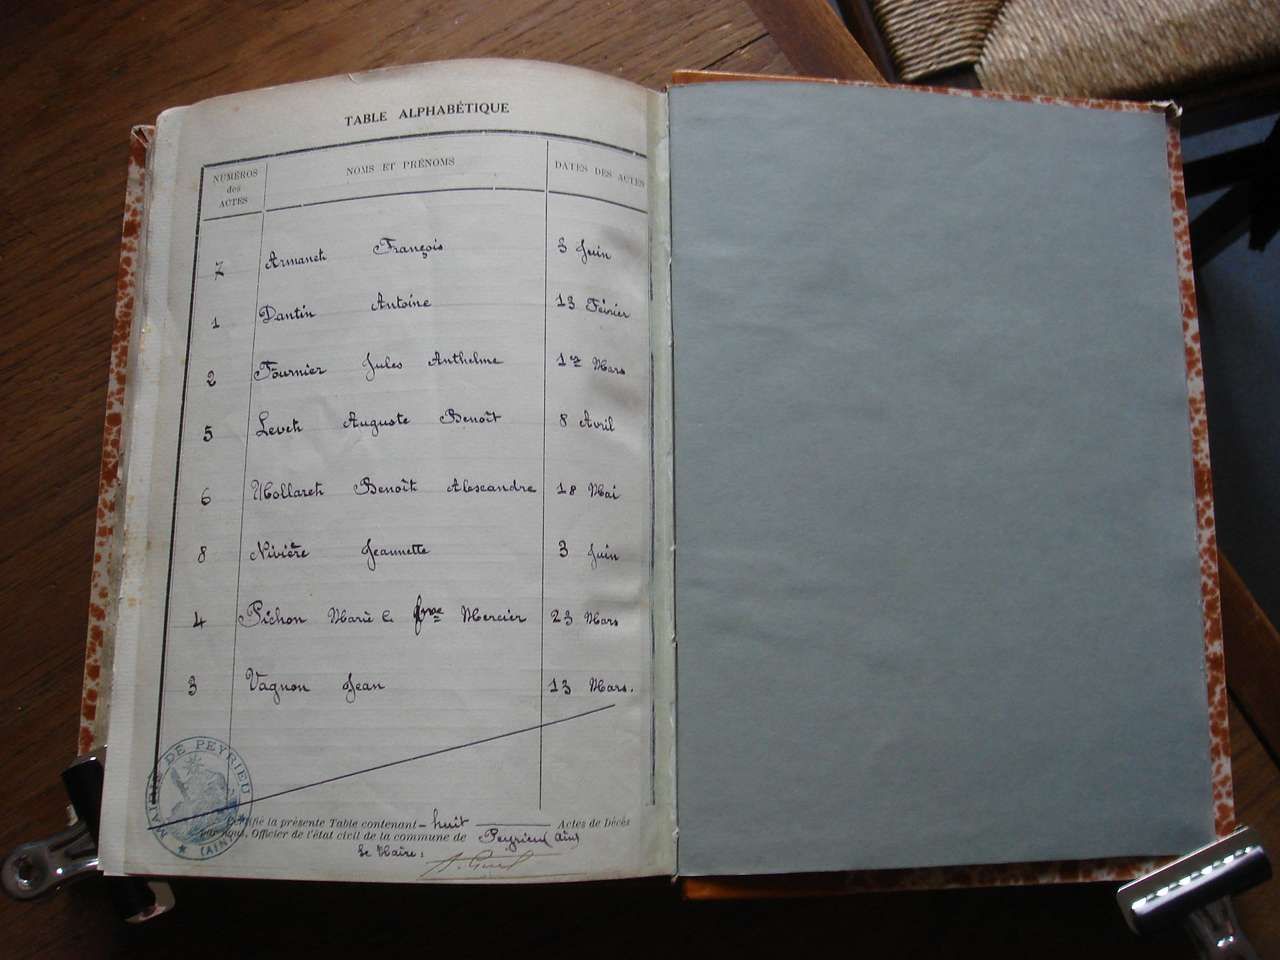 TABLE ALPHABÉTIQUE
NUMÉROS des ACTES NOMS ET PRÉNOMS DATES DES ACTES
7 Armanet François 3 Juin
1 Dantin Antoine 13 Février
2 Fournier Jules Anthelme 1er Mars
5 Levet Auguste Benoît 8 Avril
6 Mollaret Benoît Alexandre 18 Mai
8 Nivière Jeannette 3 Juin
4 Pichon Marie fme Mercier 23 Mars
3 Vagnon Jean 13 Mars.
MAIRIE DE PEYRIEU
(AIN)
Certifié la présente Table contenant huit Actes de Décès
par nous, Officier de l'état civil de la commune de Peyrieu (Ain)
Le Maire,